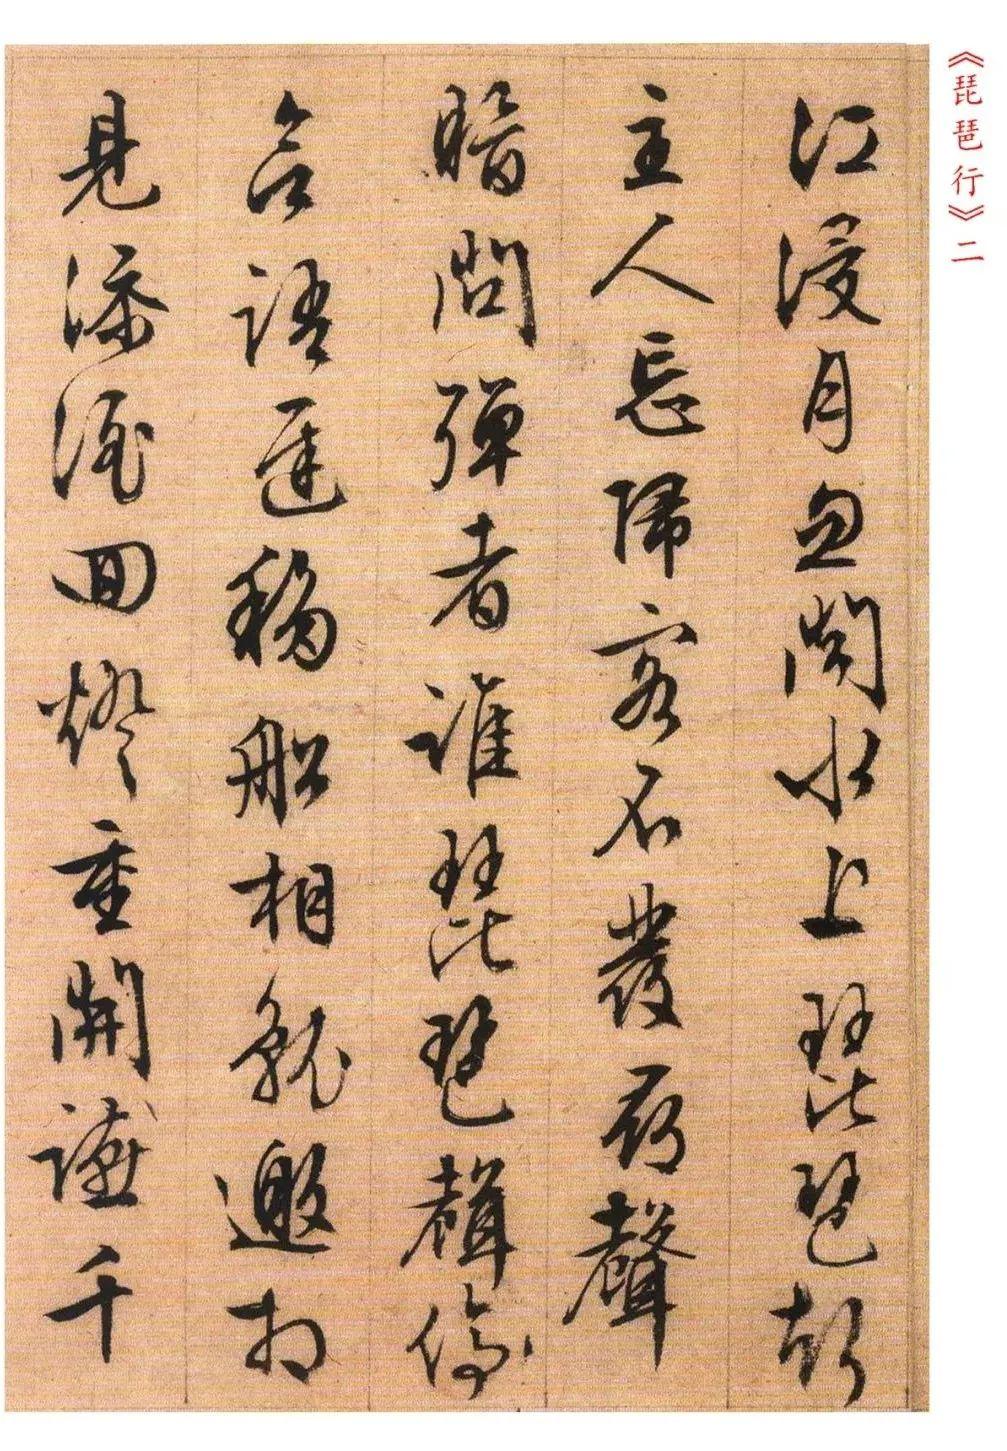 《琵琶行》二
江浸月忽聞水上琵琶聲
主人忘歸客不發尋聲
暗問彈者誰琵琶聲停
含語遲移船相就邀相
見添酒回燈重開讌千